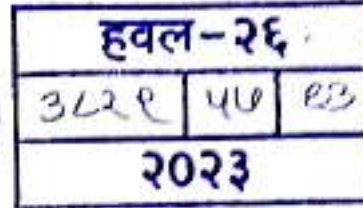 हवल-२६
३८२९ ५७ ९३
२०२३